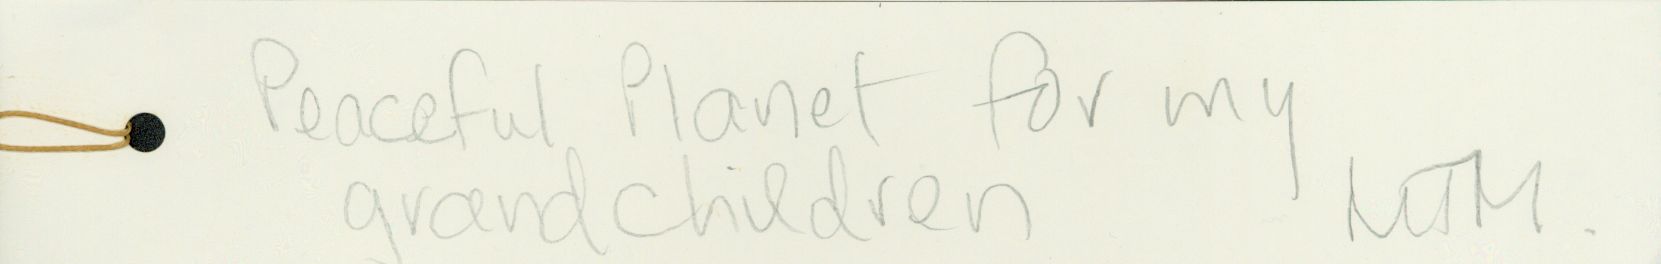 Peaceful Planet for my
grandchildren
MTM.